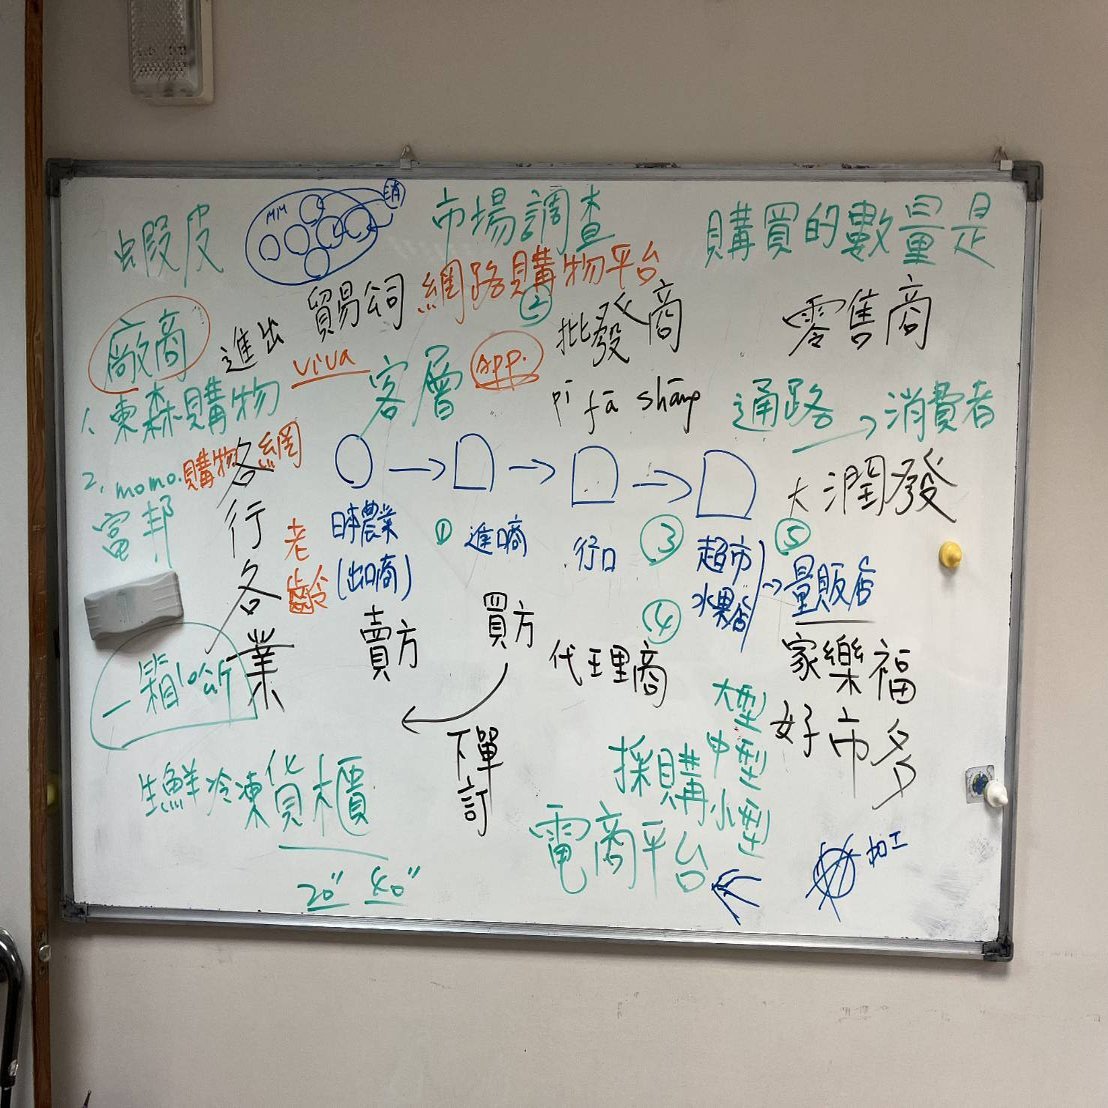 蝦皮
MM
消
市場調查
購買的數量是
廠商
進出
貿易公司
網路購物平台
②
批發商
零售商
viva
客層
App.
pī fā shāng
通路 → 消費者
1. 東森購物
2. momo.購物網
富邦
各行各業
老齡
日本農業
(出口商)
① 進口商
行口
③
超市
水果店
⑤
量販店
大潤發
④
賣方
買方
代理商
家樂福
好市多
一箱10公斤
大型
中型
小型
下單
訂
採購
生鮮冷凍貨櫃
電商平台
加工
20" 40"